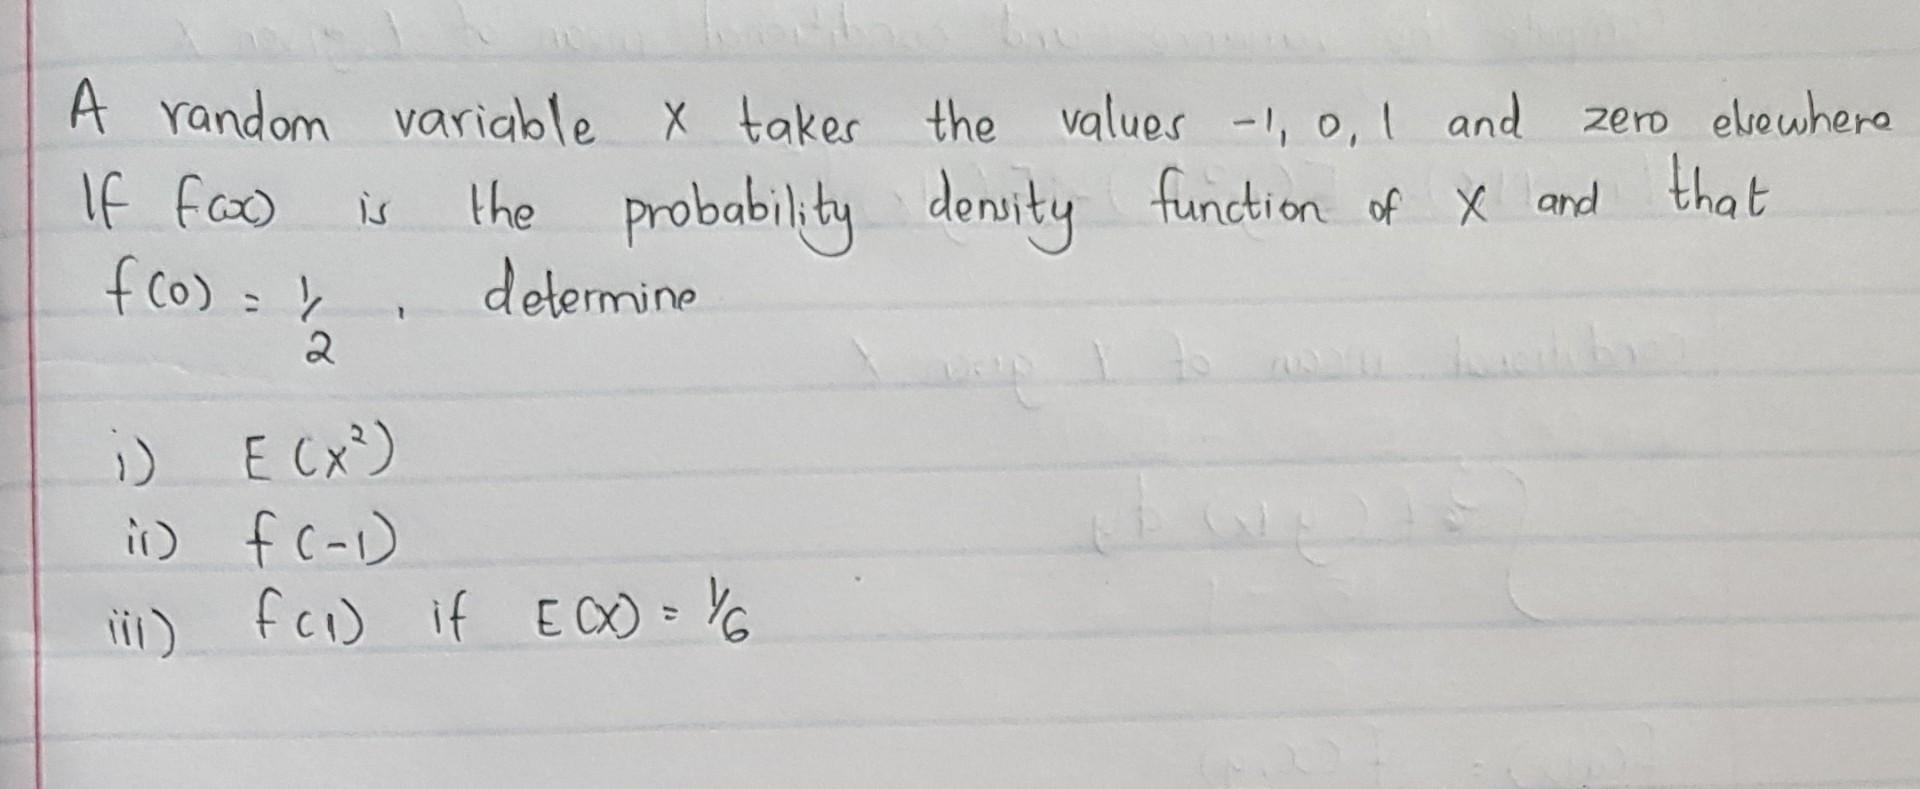 A random variable X takes the values -1, 0, 1 and zero elsewhere
If f(x) is the probability density function of X and that
f(0) = 1/2, determine
i) E(X²)
ii) f(-1)
iii) f(1) if E(X) = 1/6